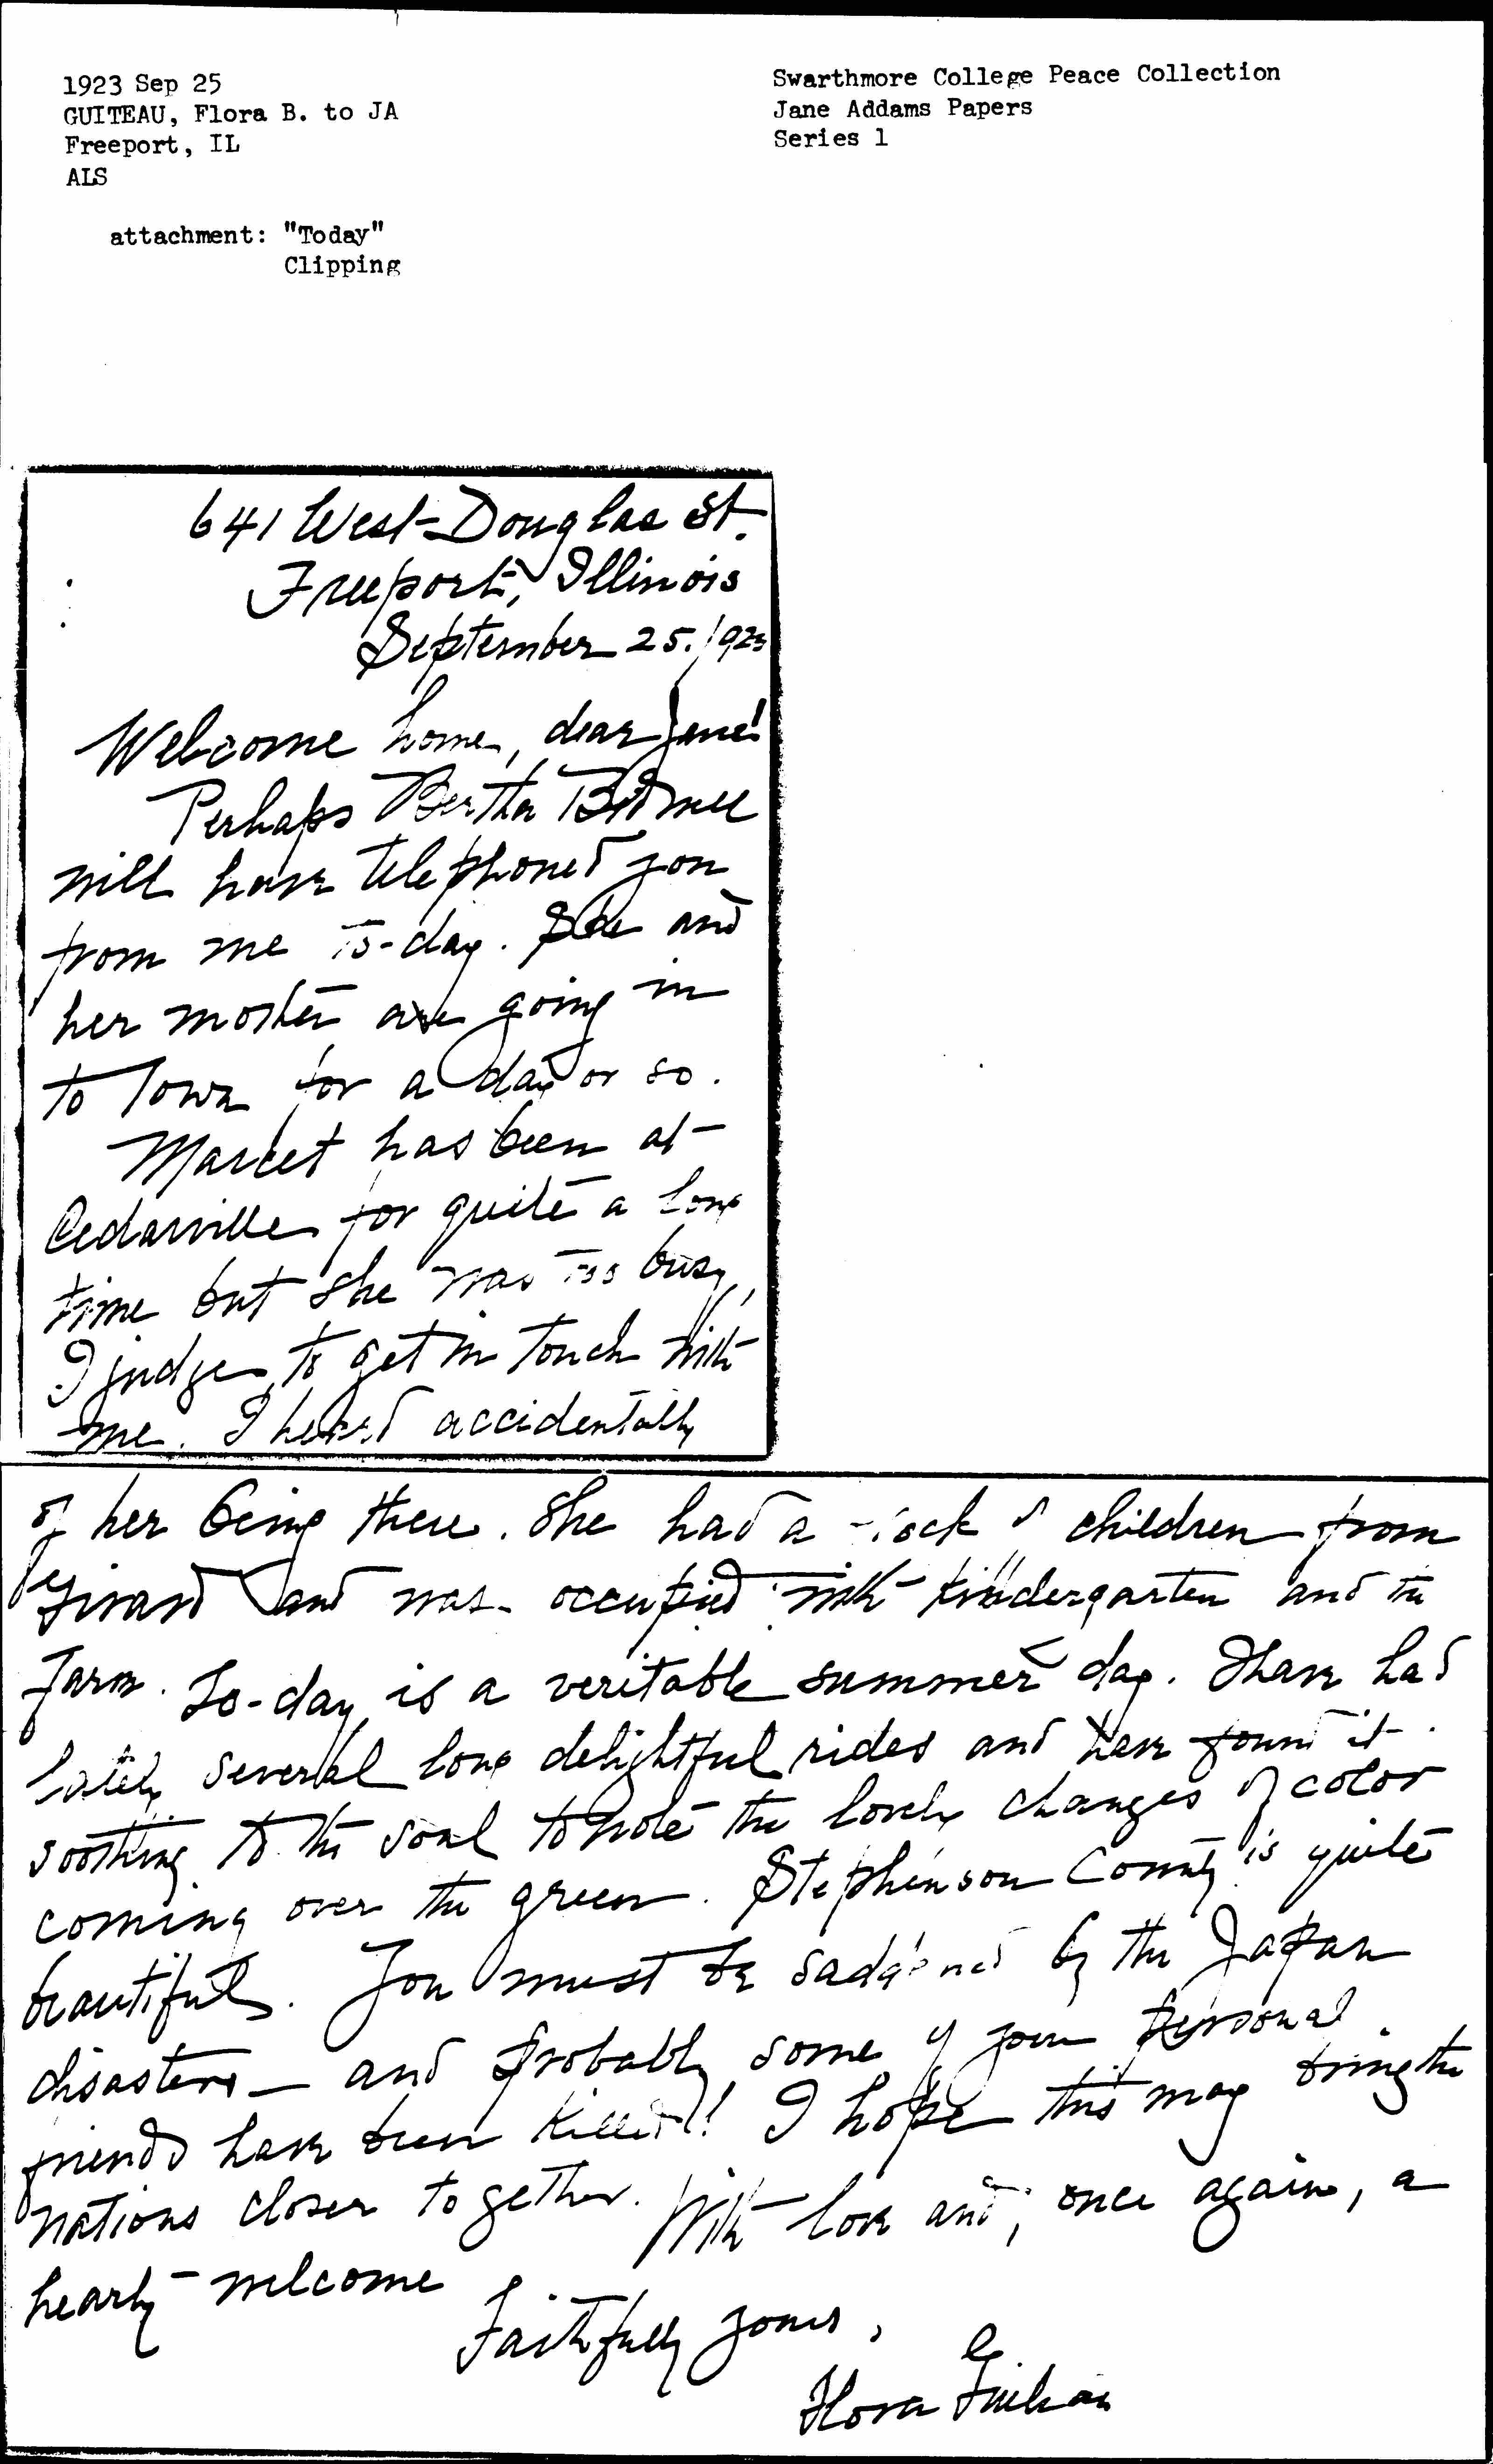 1923 Sep 25
GUITEAU, Flora B. to JA
Freeport, IL
ALS
attachment: "Today"
Clipping
Swarthmore College Peace Collection
Jane Addams Papers
Series 1
641 West Douglas St.
Freeport, Illinois
September 25. 1923
Welcome home, dear Jane!
Perhaps Bertha Bidwell
will have telephoned you
from me to-day. She and
her mother are going in
to town for a day or so.
Marcet has been at
Cedarville for quite a long
time but she was too busy,
I judge, to get in touch with
me. I heard accidentally
of her being there. She had a flock of children from
Girard and was occupied with kindergarten and the
farm. To-day is a veritable summer day. I have had
lately several long delightful rides and have found it
soothing to the soul to note the lovely changes of color
coming over the green. Stephenson County is quite
beautiful. You must be saddened by the Japan
disasters — and probably some of your personal
friends have been killed!! I hope this may bring the
nations closer together. With love and, once again, a
hearty welcome
Faithfully yours,
Flora Guiteau